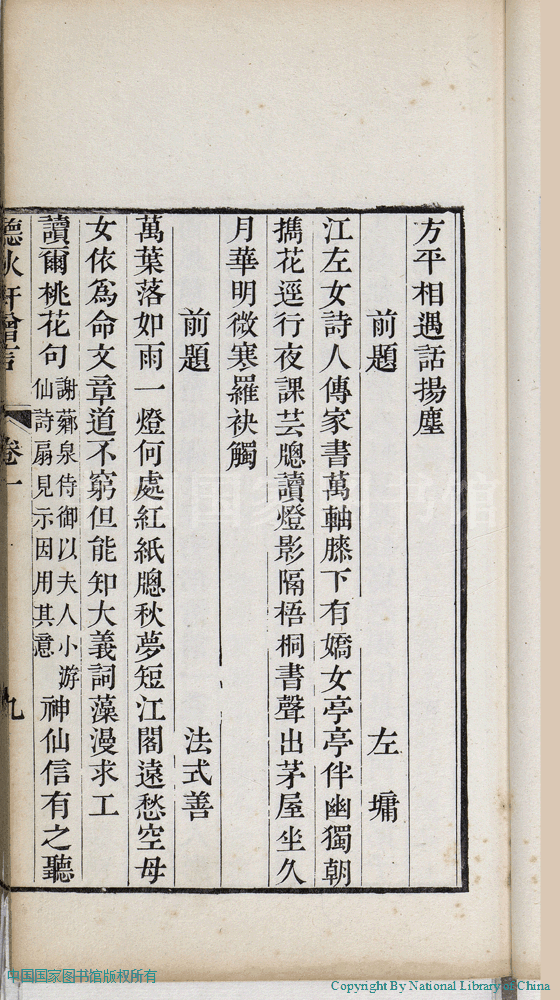 方平相遇話揚塵
前題 左墉
江左女詩人傳家書萬軸膝下有嬌女亭亭伴幽獨朝
擕花逕行夜課芸牕讀燈影隔梧桐書聲出茅屋坐久
月華明微寒羅袂觸
前題 法式善
萬葉落如雨一燈何處紅紙牕秋夢短江閣遠愁空母
女依爲命文章道不窮但能知大義詞藻漫求工
讀爾桃花句
謝薌泉侍御以夫人小游
仙詩扇見示因用其意
神仙信有之聽
聽秋軒贈言 卷一 九
中国国家图书馆版权所有
Copyright By National Library of China